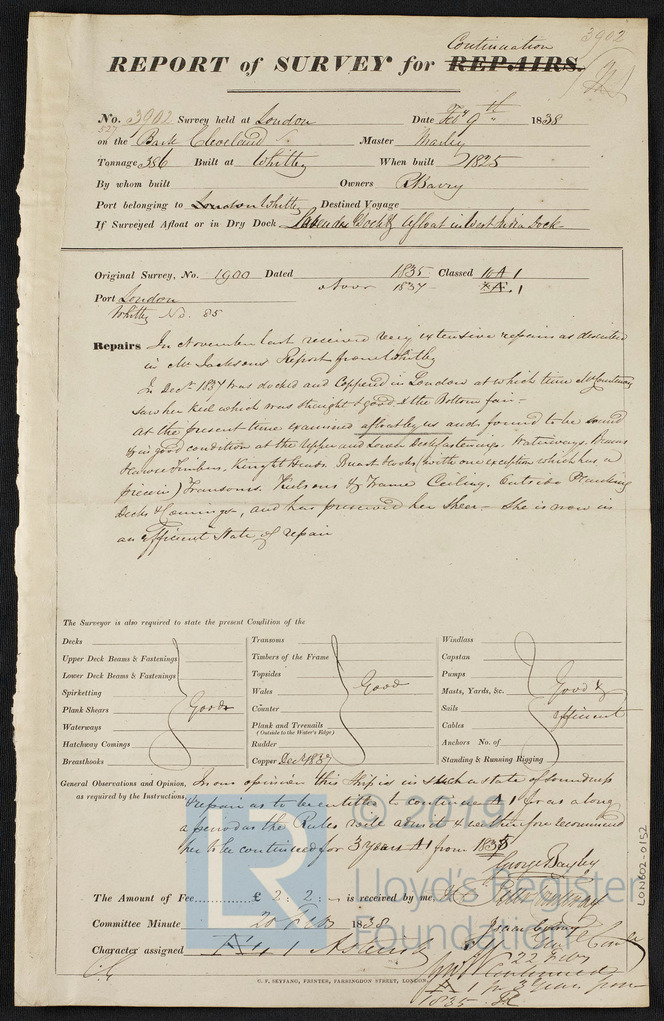 3902
Continuation
REPORT of SURVEY for REPAIRS.
No. 3902 Survey held at London Date Feby 9th 1838
527
on the Bark Cleveland Master Marley
Tonnage 386 Built at Whitby When built 1825
By whom built Owners R Barry
Port belonging to London Whitby Destined Voyage
If Surveyed Afloat or in Dry Dock Lavender Dock & afloat in West India Dock
Original Survey, No. 1900 Dated 1835 Classed 10 A 1
1837
Port London
Whitby No. 85
Repairs In November last received very extensive repairs as described
in Mr Jacksons Report from Whitby
In Decr 1837 was docked and Coppered in London at which time Mr Courtenay
saw her Keel which was straight & good & the Bottom fair
At the present time examined afloat by us and found to be sound
& in good condition at the Upper and Lower Deck fastenings. Waterways. Beams
Hawse Timbers, Knight Heads. Breast Hooks (with one exception which has a
piece in) Transoms. Kelsons & Frame Ceiling. Outside Planking
Decks & Comings, and has preserved her Sheer. She is now in
an efficient State of repair
The Surveyor is also required to state the present Condition of the
Decks
Upper Deck Beams & Fastenings
Lower Deck Beams & Fastenings
Spirketting
Plank Shears
Waterways
Hatchway Comings
Breasthooks
Good
Transoms
Timbers of the Frame
Topsides
Wales
Counter
Plank and Treenails
(Outside to the Water's Edge)
Rudder
Copper Decr 1837
Good
Windlass
Capstan
Pumps
Masts, Yards, &c.
Sails
Cables
Anchors No. of
Standing & Running Rigging
Good &
efficient
General Observations and Opinion, In our opinion this Ship is in such a state of soundness
as required by the Instructions, & repair as to be entitled to continue A 1 for as long
a period as the Rules will admit & we therefore recommend
her to be continued for 3 years A 1 from 1835
George Bayley
The Amount of Fee............ £ 2 : 2 : - is received by me,
Peter Courtenay
Committee Minute 20 Feby 1838
Character assigned
22 Feby
Continued
1 for 3 Years from
1835
C. F. SEYFANG, PRINTER, FARRINGDON STREET, LONDON.
LON602-0152
© 2019
Lloyd's Register
Foundation
LR